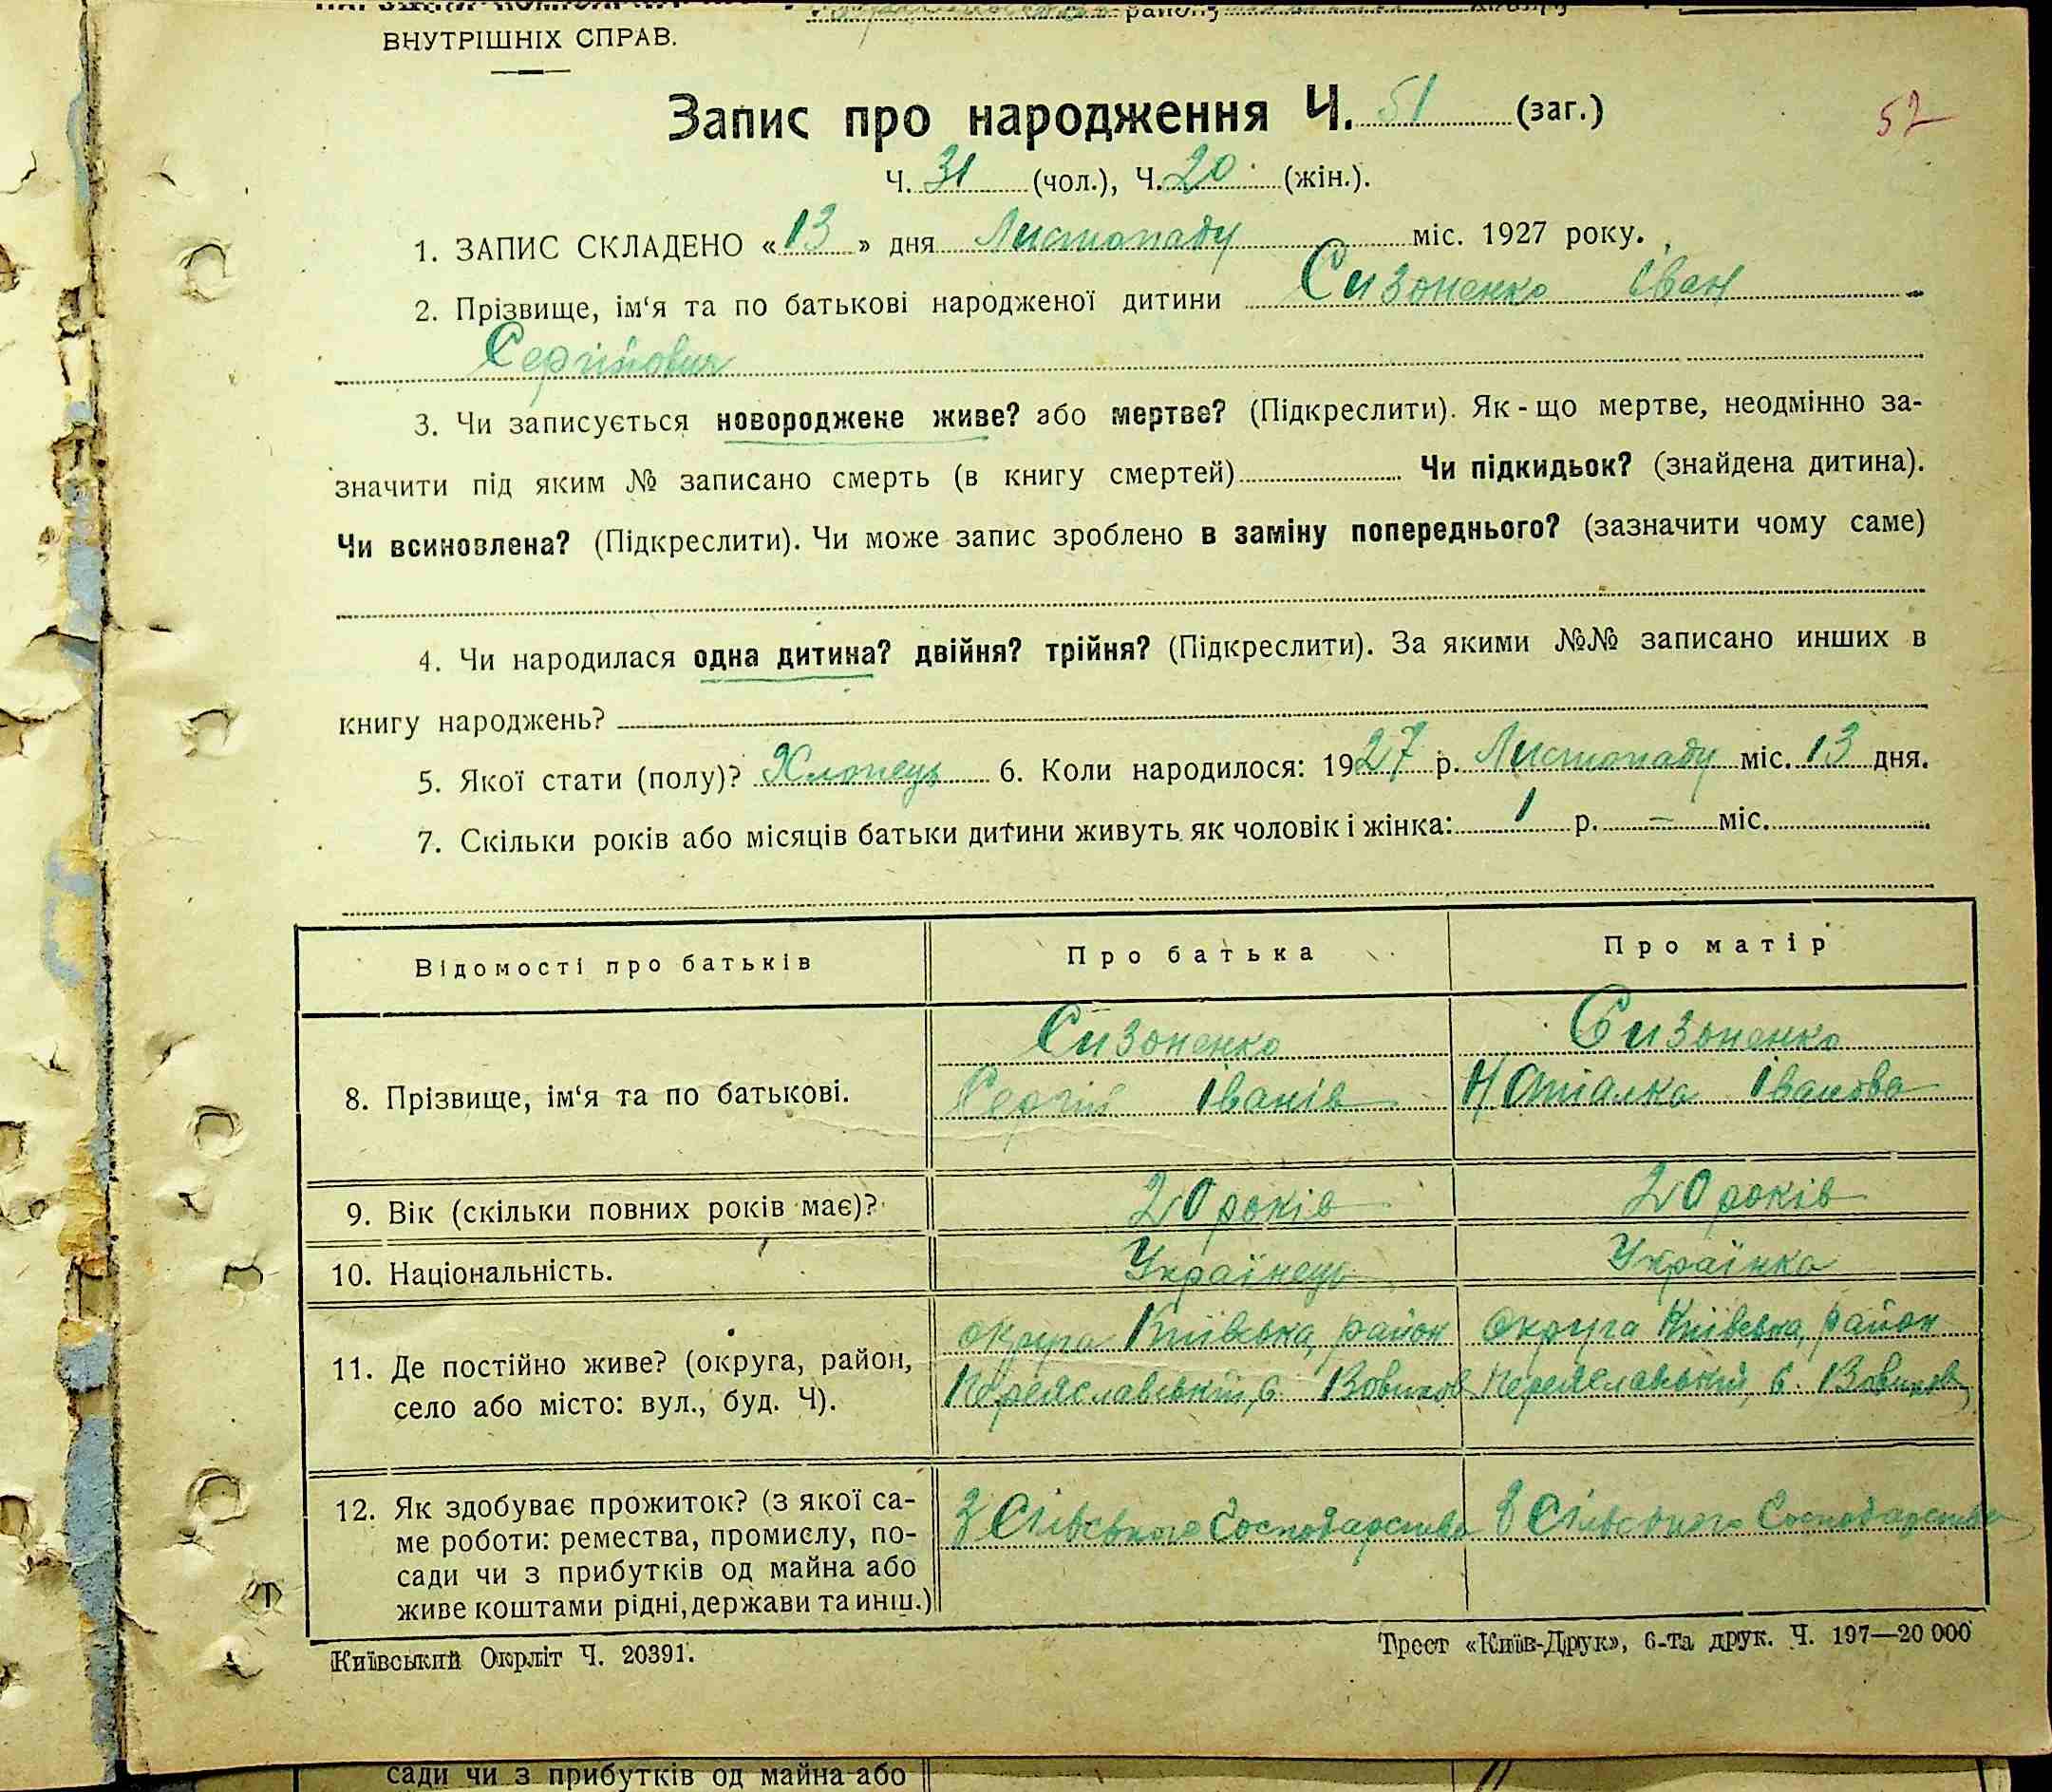 ВНУТРІШНІХ СПРАВ. району
Запис про народження Ч. 51 (заг.) 52
Ч. 31 (чол.), Ч. 20 (жін.).
1. ЗАПИС СКЛАДЕНО «13» дня Листопаду міс. 1927 року.
2. Прізвище, ім‘я та по батькові народженої дитини Сизоненко Іван
Сергійович
3. Чи записується новороджене живе? або мертве? (Підкреслити). Як-що мертве, неодмінно за-
значити під яким № записано смерть (в книгу смертей) Чи підкидьок? (знайдена дитина).
Чи всиновлена? (Підкреслити). Чи може запис зроблено в заміну попереднього? (зазначити чому саме)
4. Чи народилася одна дитина? двійня? трійня? (Підкреслити). За якими №№ записано инших в
книгу народжень?
5. Якої стати (полу)? Хлопець 6. Коли народилося: 1927 р. Листопаду міс. 13 дня.
7. Скільки років або місяців батьки дитини живуть як чоловік і жінка: 1 р. – міс.
Відомості про батьків Про батька Про матір
8. Прізвище, ім‘я та по батькові. Сизоненко Сизоненко
Сергій Іванів Наталка Іванова
9. Вік (скільки повних років має)? 20 років 20 років
10. Національність. Українець Українка
11. Де постійно живе? (округа, район, округа Київська, район Округа Київська, район
село або місто: вул., буд. Ч). Переяславський, с. Переяславський, с.
12. Як здобуває прожиток? (з якої са- З Сільського Господарства З Сільського Господарства
ме роботи: ремества, промислу, по-
сади чи з прибутків од майна або
живе коштами рідні, держави та инш.)
Київський Окрліт Ч. 20391. Трест «Київ-Друк», 6-та друк. Ч. 197—20 000
сади чи з прибутків од майна або